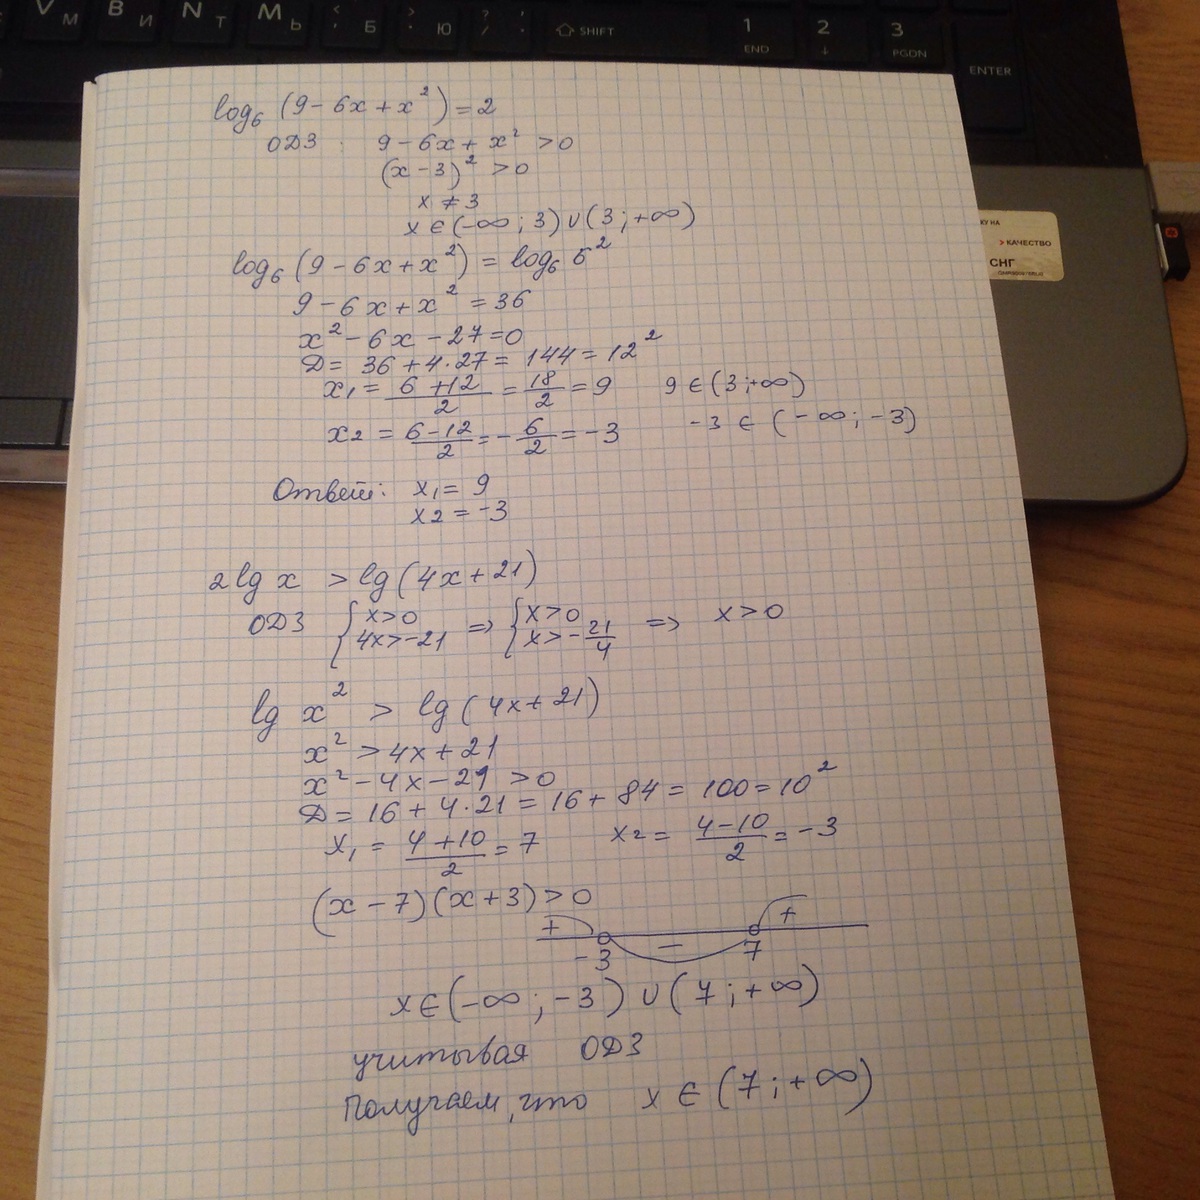 V М
B И
N Т
M Ь
< , Б
> . Ю
? / .
SHIFT
1 END
2 ↓
3 PGDN
ENTER
КУ НА
> КАЧЕСТВО
СНГ
log₆ (9 - 6x + x²) = 2
ОДЗ : 9 - 6x + x² > 0
(x - 3)² > 0
x ≠ 3
x ∈ (-∞ ; 3) ∪ (3 ; +∞)
log₆ (9 - 6x + x²) = log₆ 6²
9 - 6x + x² = 36
x² - 6x - 27 = 0
D = 36 + 4 · 27 = 144 = 12²
x₁ = (6 + 12)/2 = 18/2 = 9 9 ∈ (3 ; +∞)
x₂ = (6 - 12)/2 = - 6/2 = -3 -3 ∈ (-∞ ; -3)
Ответ: x₁ = 9
x₂ = -3
2 lg x > lg (4x + 21)
ОДЗ { x > 0 4x > -21 => { x > 0 x > - 21/4 => x > 0
lg x² > lg (4x + 21)
x² > 4x + 21
x² - 4x - 21 > 0
D = 16 + 4 · 21 = 16 + 84 = 100 = 10²
x₁ = (4 + 10)/2 = 7 x₂ = (4 - 10)/2 = -3
(x - 7) (x + 3) > 0
+ - +
-3 7
x ∈ (-∞ ; -3) ∪ (7 ; +∞)
учитывая ОДЗ
Получаем, что x ∈ (7 ; +∞)